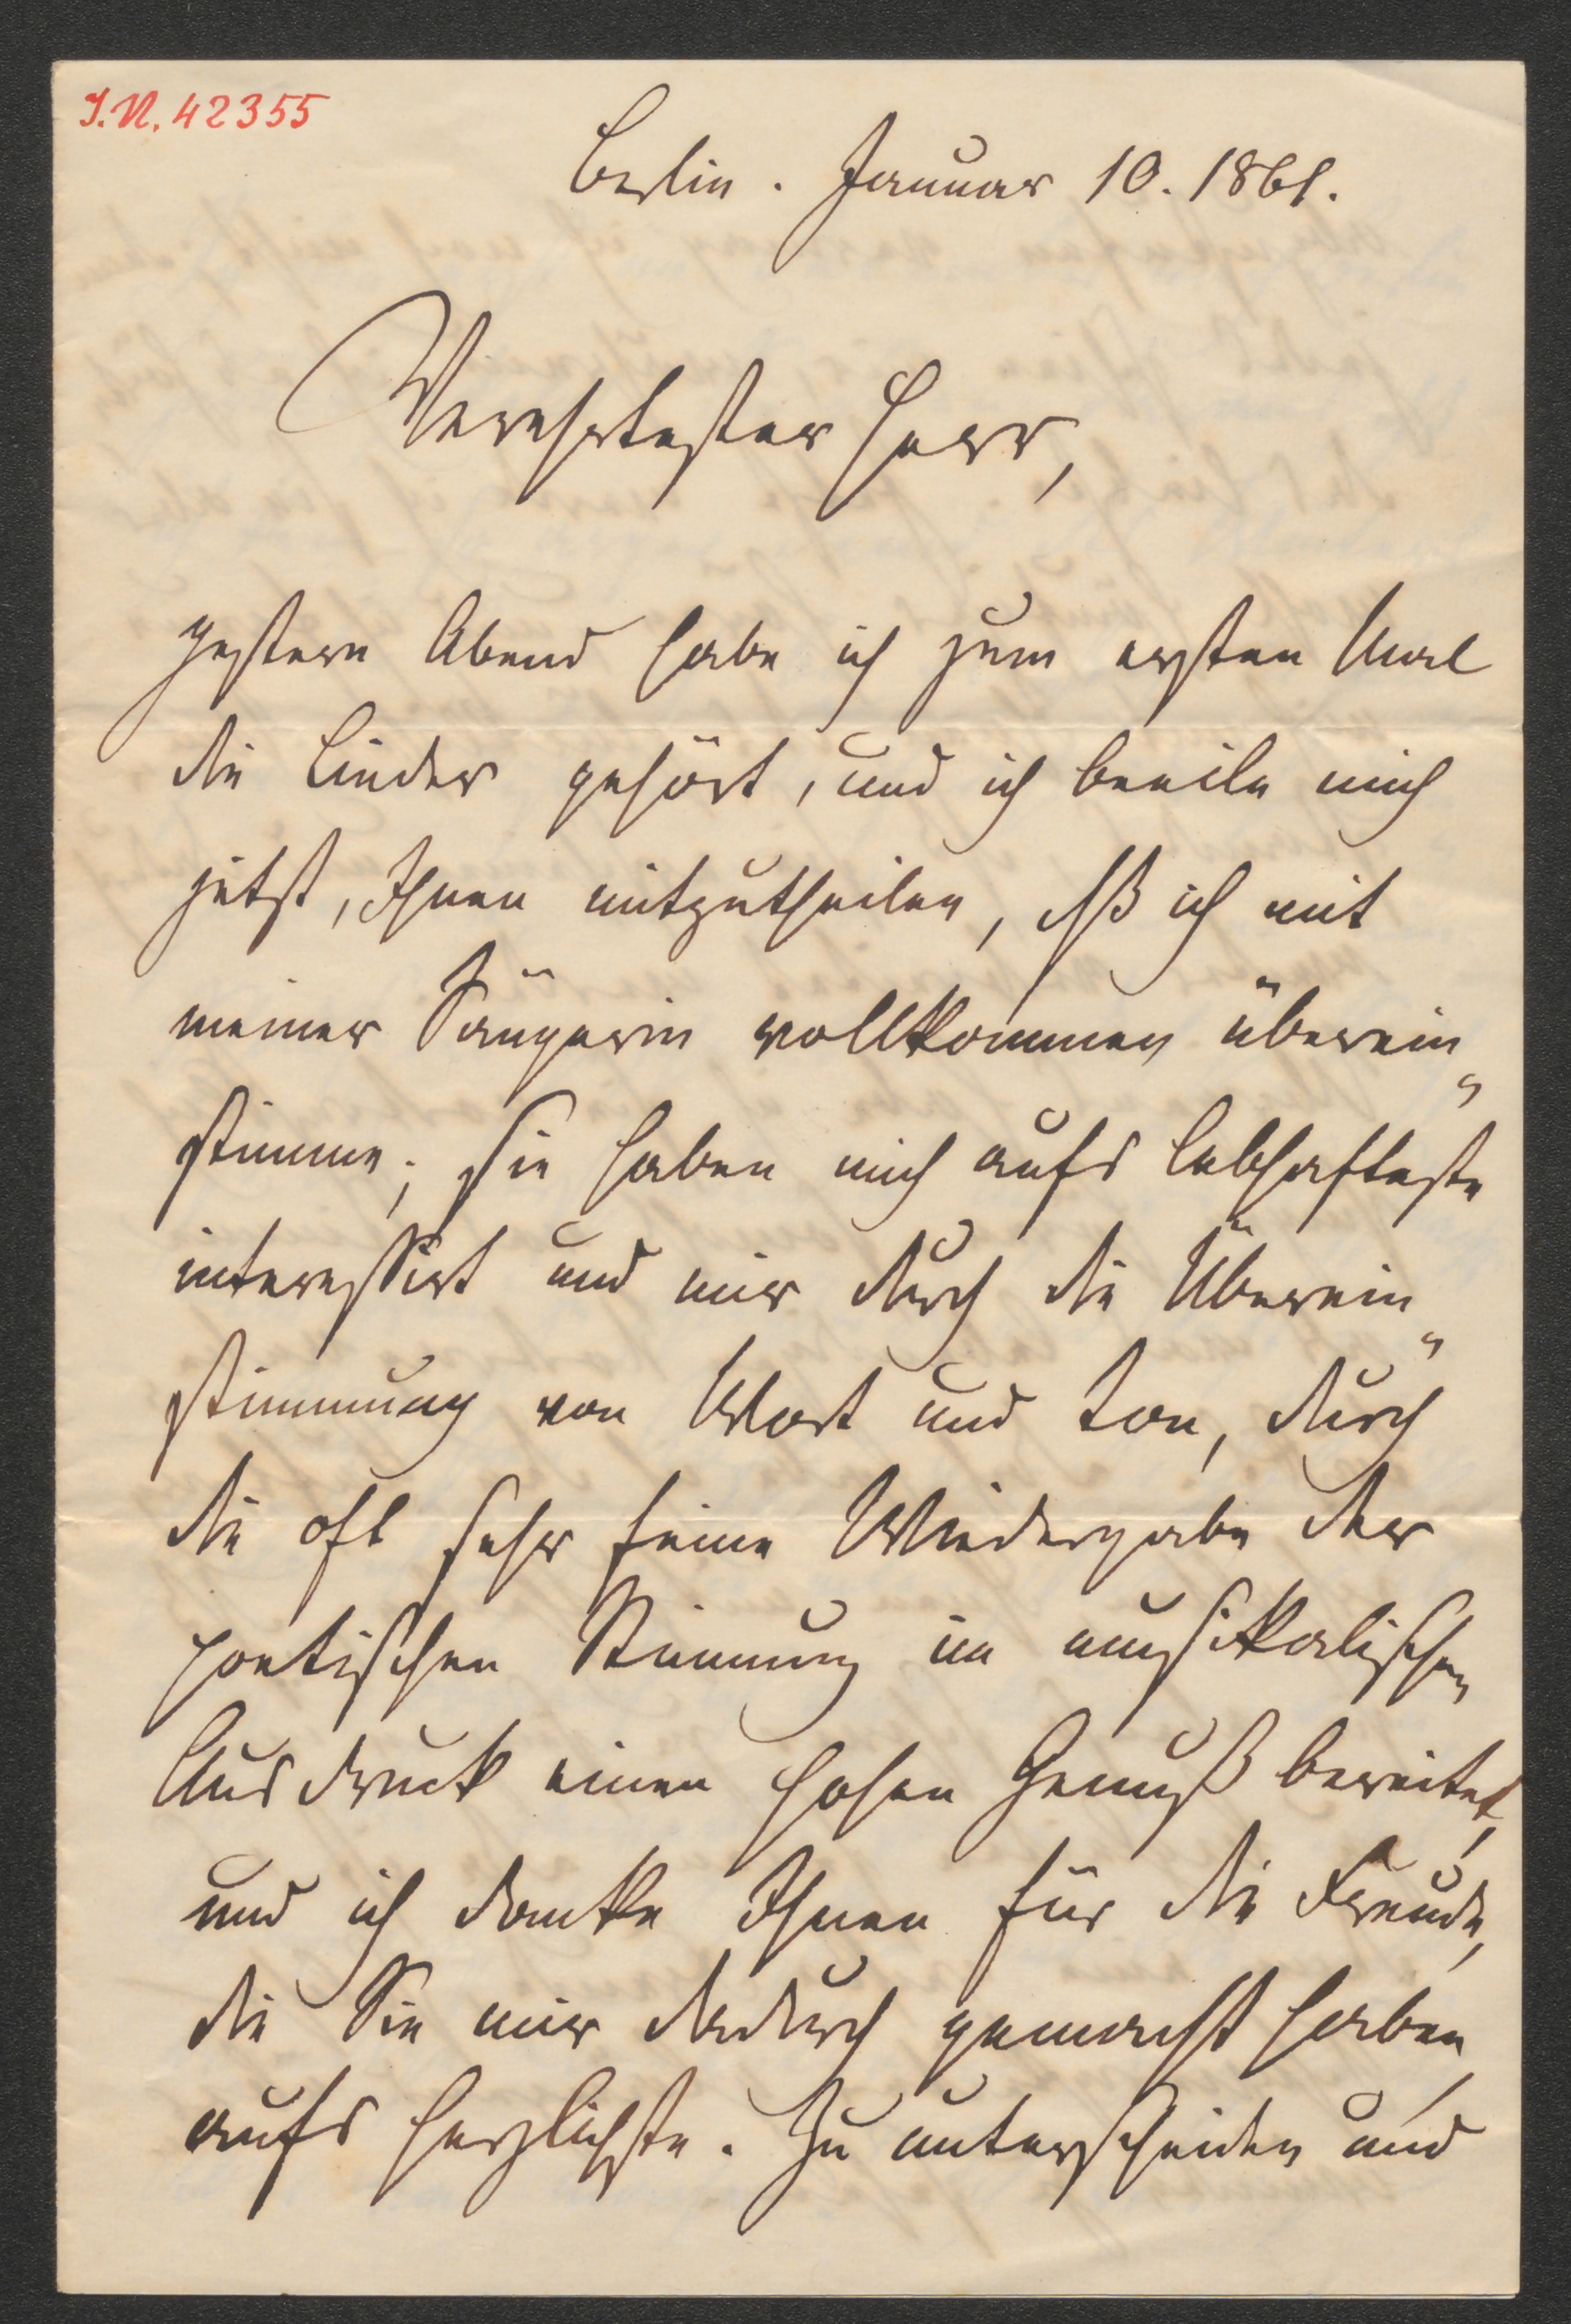 I.N. 42355
Berlin. Januar 10. 1861.
Verehrtester Herr,
gestern Abend habe ich zum ersten Mal
die Lieder gehört, und ich beeile mich
jetzt, Ihnen mitzutheilen, dß ich mit
meiner Sängerin vollkommen überein„
stimme; sie haben mich aufs lebhafteste
interessirt und mir durch die Überein„
stimmung von Wort und Ton, durch
die oft sehr feine Wiedergabe der
poetischen Stimmung im musikalischen
Ausdruck einen hohen Genuß bereitet,
und ich danke Ihnen für die Freude,
die Sie mir dadurch gemacht haben,
aufs herzlichste. Zu unterscheiden und